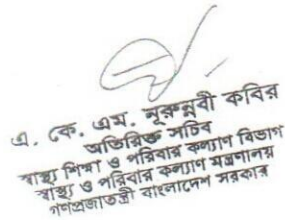 এ. কে. এম. নূরুন্নবী কবির
অতিরিক্ত সচিব
স্বাস্থ্য শিক্ষা ও পরিবার কল্যাণ বিভাগ
স্বাস্থ্য ও পরিবার কল্যাণ মন্ত্রণালয়
গণপ্রজাতন্ত্রী বাংলাদেশ সরকার